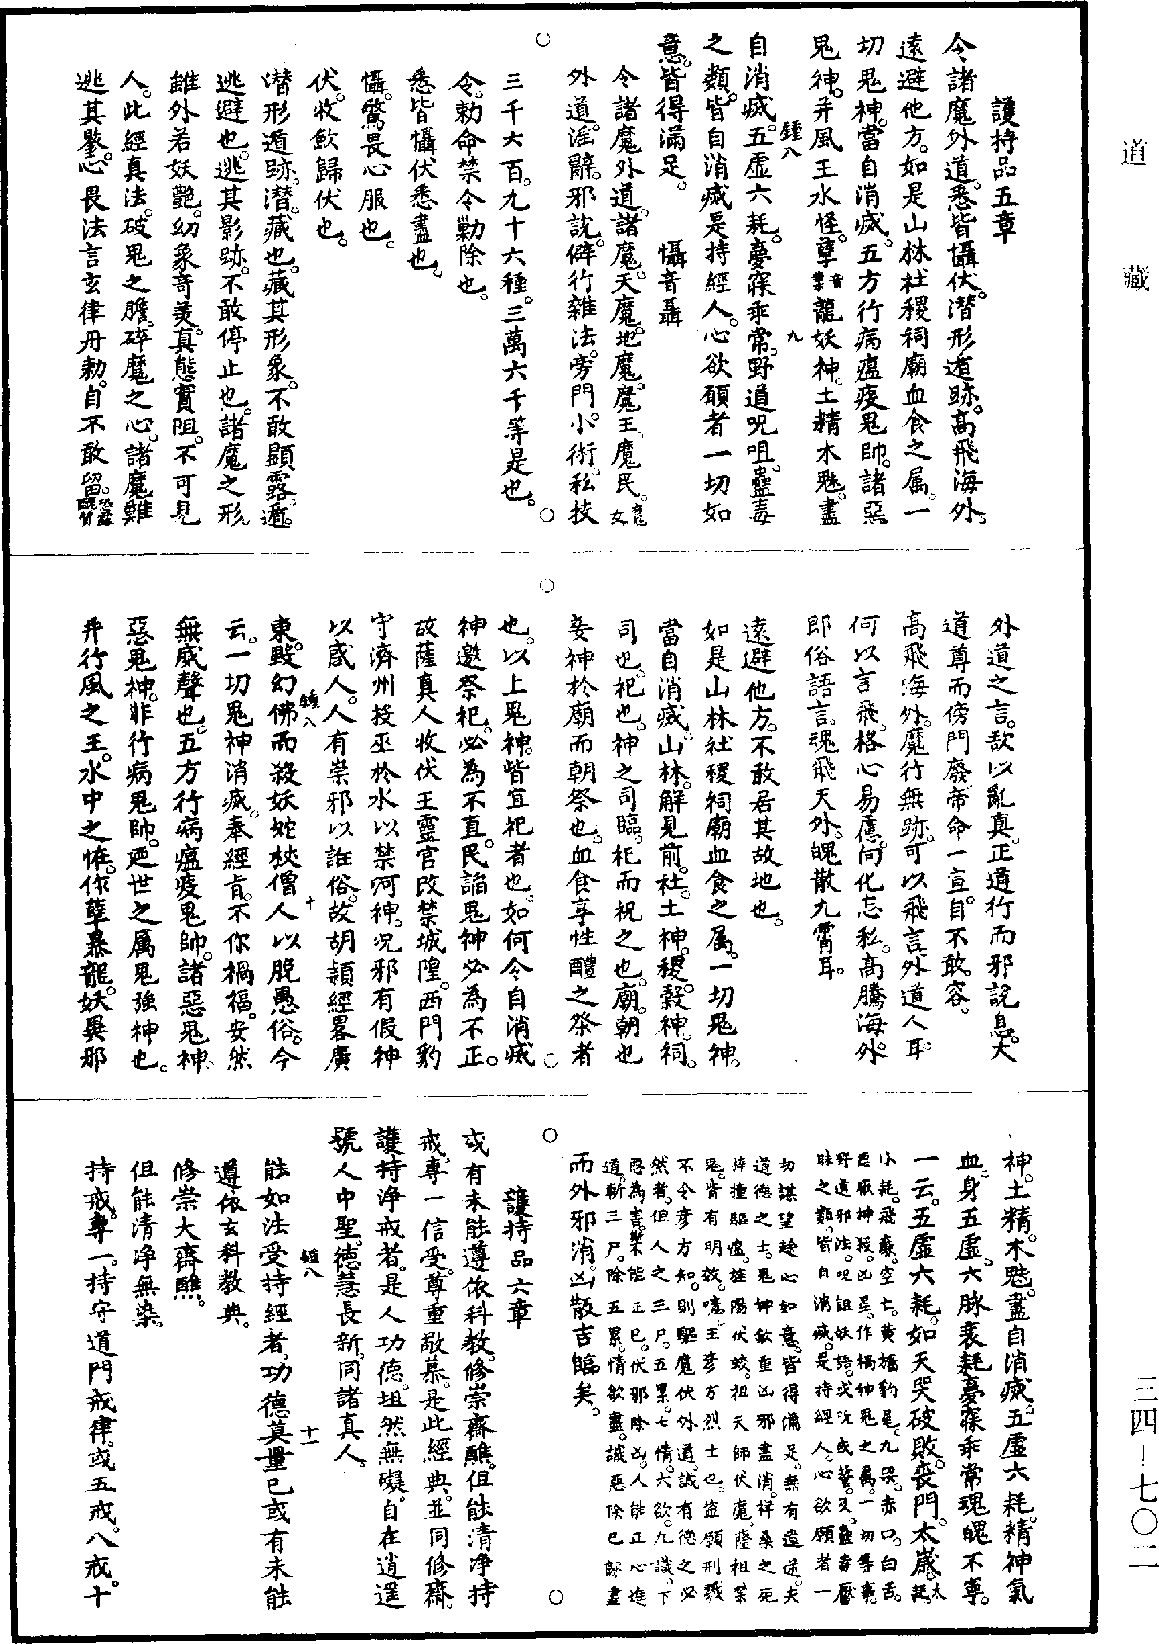 道藏
三四—七〇二
護持品五章
令諸魔外道。悉皆懾伏。潛形遁跡。高飛海外。
遠避他方。如是山林社稷祠廟血食之属。一
切鬼神。當自消滅。五方行病瘟疫鬼帥。諸惡
鬼神。并風王水怪。孽音業龍妖神。土精木魅。盡
自消滅。五虛六耗。夢寐乖常。野道呪咀。蠱毒
之類。皆自消滅。是持經人。心欲願者一切如
意。皆得滿足。 懾音聶
令諸魔外道。諸魔。天魔。地魔。魔王。魔民。魔女
外道。淫辭。邪說。僻行雜法。旁門。小術。私技
三千六百。九十六種。三萬六千等是也。
令。勅命禁令勦除也。
悉皆懾伏悉盡也。
懾。驚畏心服也。
伏。收斂歸伏也。
潛形遁跡。潛。藏也。藏其形象。不敢顯露。遁。
逃避也。逃其影跡。不敢停止也。諸魔之形
雖外若妖艷。幻象奇美。真態實阻。不可見
人。此經真法。破鬼之膽。碎魔之心。諸魔難
逃其鑒。心畏法言玄律丹勅。自不敢留。
外道之言。敖以亂真。正道行而邪說息。大
道尊而傍門廢。帝命一宣。自不敢容。
高飛海外。魔行無跡。可以飛言。外道人耳
何以言飛。格心易應。向化忘私。高騰海外。
即俗語言。魂飛天外。魄散九霄耳。
遠避他方。不敢居其故地也。
如是山林社稷祠廟血食之属。一切鬼神。
當自消滅。山林。解見前。社。土神。稷。穀神。祠。
司也。祀也。神之司臨。祀而祝之也。廟。朝也
妥神於廟而朝祭也。血食享性醴之祭者
也。以上鬼神。皆宜祀者也。如何令自消滅
神邀祭祀。必為不直。民諂鬼神必為不正。
故薩真人收伏王靈官改禁城隍。西門豹
守濟州投巫於水以禁河神。况邪有假神
以惑人。人有崇邪以誑俗。故胡頴經畧廣
東。毀幻佛而殺妖蛇杖僧人以脫愚俗。今
云。一切鬼神消滅。奉經旨。不作禍福。安然
無威聲也。五方行病瘟疫鬼帥。諸惡鬼神
惡鬼神。非行病鬼帥。迺世之属鬼強神也。
并行風之王。水中之怪。作孽暴龍。妖異邪
神。土精。木魅。盡自消滅。五虛六耗。精神氣
血。身五虛。六脉衰耗。夢寐乖常。魂魄不寧。
一云。五虛六耗。如天哭破敗。丧門。太歲。太耗。
小耗。飛廉。空亡。黃旛豹尾。九哭。赤口。白舌。
惡厭神殺。凶星。作禍神鬼之属。一切等事。
野道邪法。呪詛妖語。或訛或驚。及蠱毒魘
昧之類。皆自消滅。是持經人。心欲願者一
切謀望趂心如意。皆得滿足。無有違逆。夫
道德之士。鬼神欽重凶邪盡消。祥桑之死
鐘驅瘟。旌陽伏蛟。祖天師伏魔。薩祖禁
鬼。皆有明效。嘻。王彥方烈士也。盗願刑戮
不令彥方知。則驅魔伏外道。誠有德之必
然者。但人之三尸。五累。七情。六欲。九識。下
惡為害。不能正己。伏邪除凶。人能正心進
道。斬三尸。除五累。情欲盡。識惡除。已餘盡
而外邪消。凶散吉臨矣。
護持品六章
或有未能遵依科教。修崇齋醮。但能清淨持
戒。專一信受。尊重敬慕。是此經典。並同修齋。
護持淨戒者。是人功德。坦然無礙。自在逍遥
號人中聖。德慧長新。同諸真人。
能如法受持經者。功德莫量已。或有未能
遵依玄科教典。
修崇大齋醮。
但能清淨無染。
持戒。專一。持守道門戒律。或五戒。八戒。十